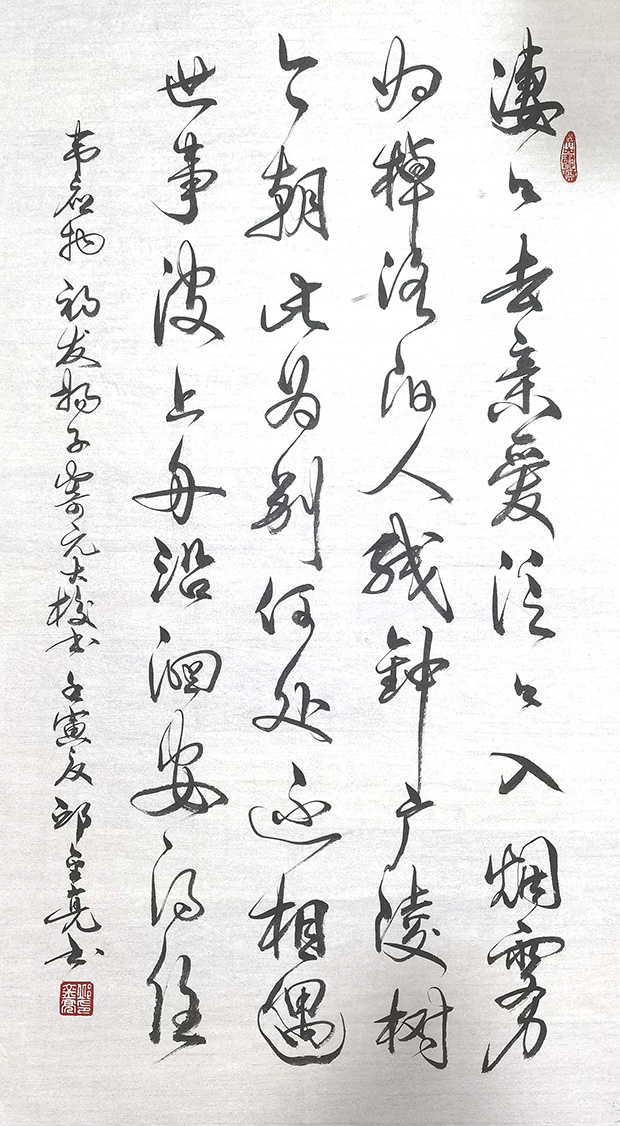 凄〻去亲爱泛〻入烟雾
归棹洛阳人残钟广陵树
今朝此为别何处还相遇
世事波上舟沿洄安得住
韦应物 初发扬子寄元大校书 壬寅夏 邱金亮书